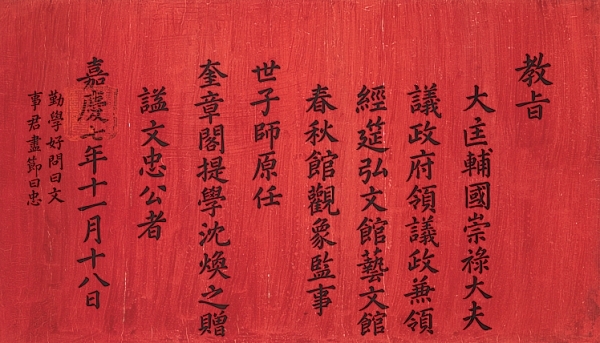 教旨
大匡輔國崇祿大夫
議政府領議政兼領
經筵弘文館藝文館
春秋館觀象監事
世子師原任
奎章閣提學沈煥之贈
諡文忠公者
嘉慶七年十一月十八日
勤學好問曰文
事君盡節曰忠